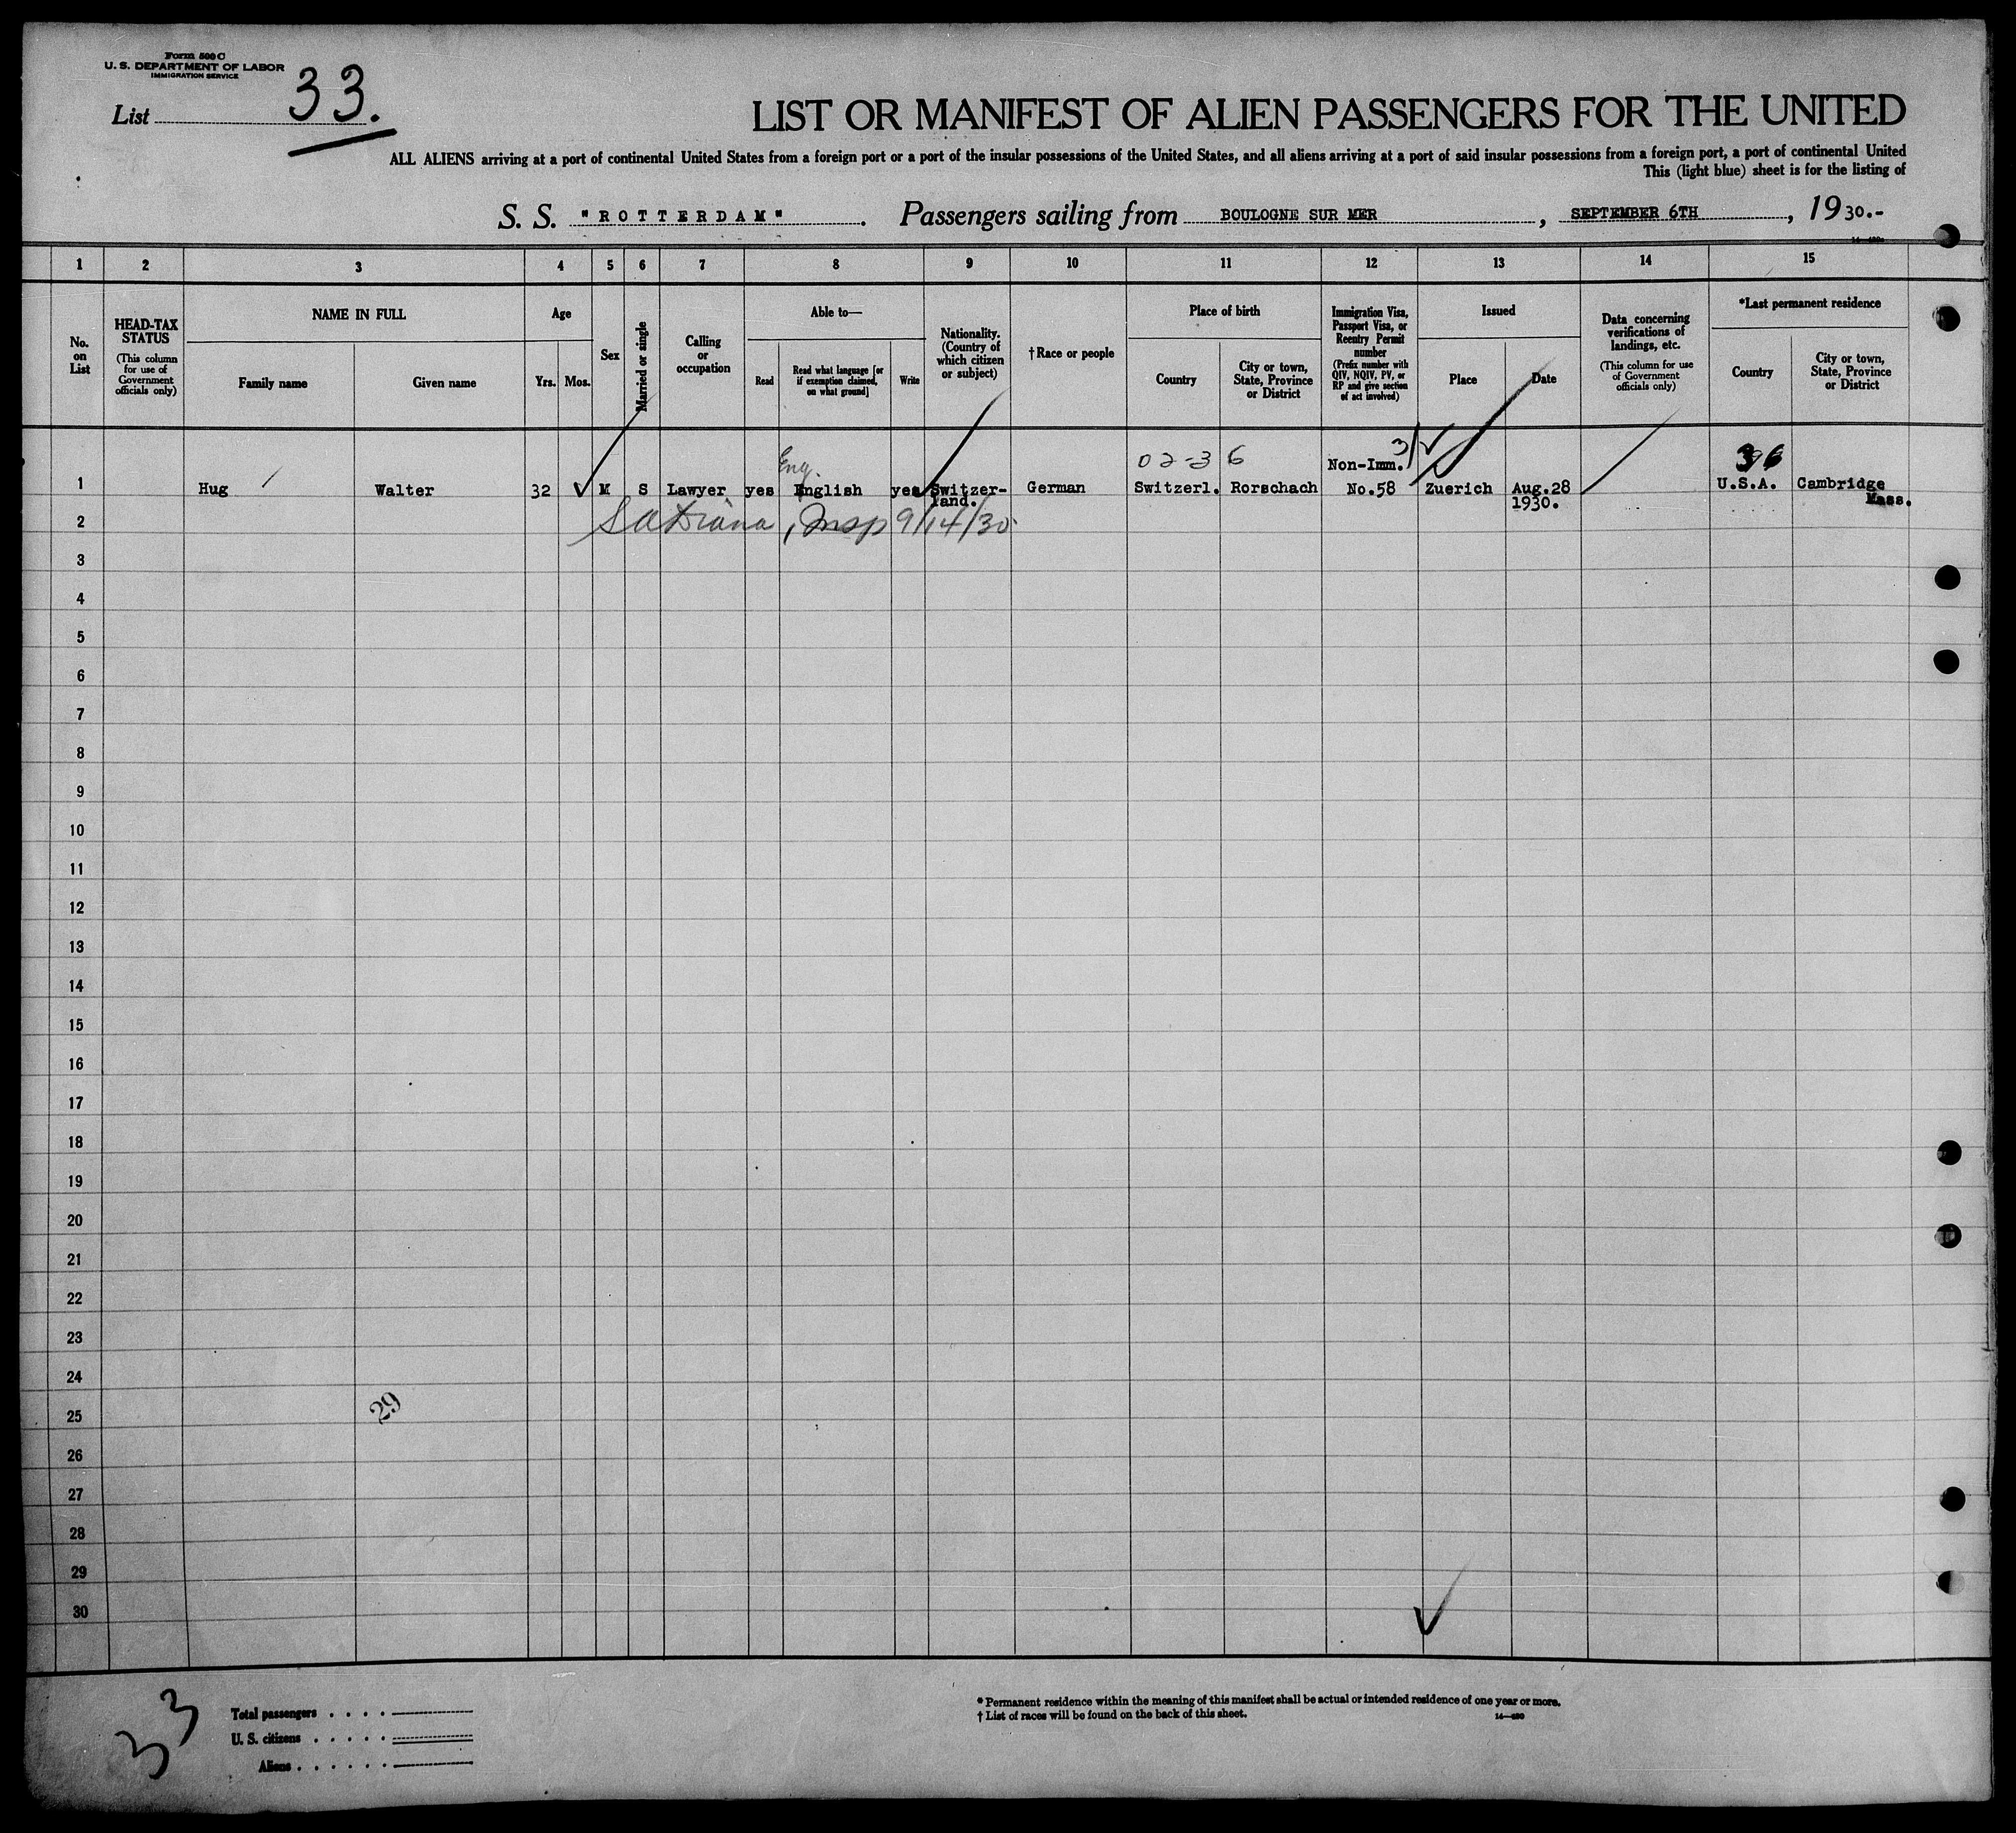 Form 500 C
U. S. DEPARTMENT OF LABOR
IMMIGRATION SERVICE
List 33.
LIST OR MANIFEST OF ALIEN PASSENGERS FOR THE UNITED
ALL ALIENS arriving at a port of continental United States from a foreign port or a port of the insular possessions of the United States, and all aliens arriving at a port of said insular possessions from a foreign port, a port of continental United
This (light blue) sheet is for the listing of
S. S. "ROTTERDAM". Passengers sailing from BOULOGNE SUR MER, SEPTEMBER 6TH, 1930.-
1 2 3 4 5 6 7 8 9 10 11 12 13 14 15
No. on List
HEAD-TAX STATUS
(This column for use of Government officials only)
NAME IN FULL
Family name
Given name
Age
Yrs.
Mos.
Sex
Married or single
Calling or occupation
Able to—
Read
Read what language [or if exemption claimed, on what ground]
Write
Nationality. (Country of which citizen or subject)
†Race or people
Place of birth
Country
City or town, State, Province or District
Immigration Visa, Passport Visa, or Reentry Permit number
(Prefix number with QIV, NQIV, PV, or RP and give section of act involved)
Issued
Place
Date
Data concerning verifications of landings, etc.
(This column for use of Government officials only)
*Last permanent residence
Country
City or town, State, Province or District
Eng. 02-36 Non-Imm. 3/ 
1 Hug Walter 32 M S Lawyer yes English yes Switzer- German Switzerl. Rorschach No.58 Zuerich Aug.28 U.S.A. Cambridge
land. 1930. Mass.
2 Insp 9/14/30
3
4
5
6
7
8
9
10
11
12
13
14
15
16
17
18
19
20
21
22
23
24
29
25
26
27
28
29
30
33
Total passengers
U. S. citizens
Aliens
* Permanent residence within the meaning of this manifest shall be actual or intended residence of one year or more.
† List of races will be found on the back of this sheet.